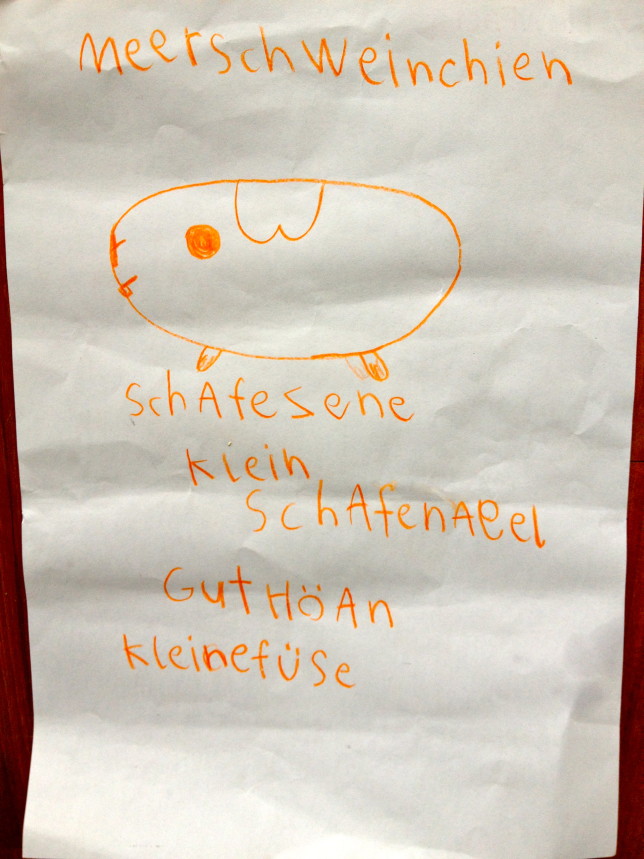 MeerschWeinchien
SchAfeSene
Klein
SchAfenAeel
GutHöAn
Kleinefüse